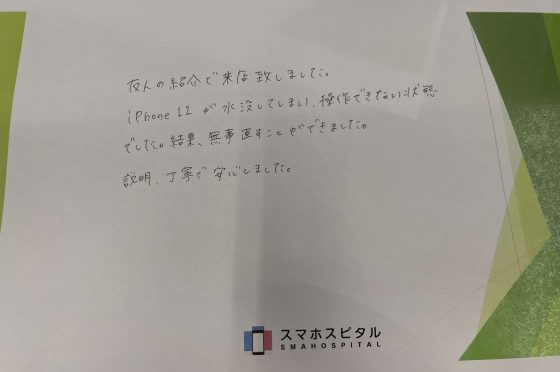 友人の紹介で来店致しました。
iPhone 11 が水没してしまい、操作できない状態
でした。結果、無事直すことができました。
説明、丁寧で安心しました。
スマホスピタル
SMAHOSPITAL